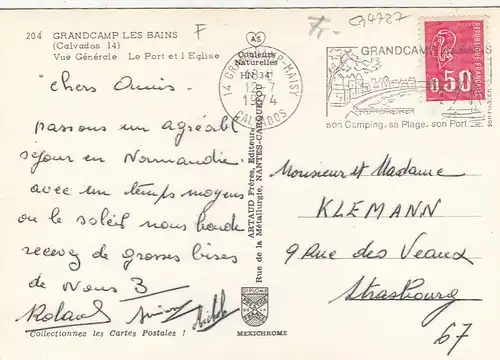 204 GRANDCAMP LES BAINS
(Calvados 14)
Vue Générale Le Port et l Eglise
F
CJ4727
AS
Couleurs
Naturelles
HN 34
14 GRANDCAMP-MAISY
12-7
1974
CALVADOS
GRANDCAMP LES BAINS
son Camping, sa Plage, son Port
REPUBLIQUE FRANCAISE
0,50
chers Amis.
passons un agréabl
séjour en Normandie
avec un temps moyens
ou le soleil nous boude
recevez de grosses bises
de Nous 3
Roland
Michele
Monsieur et Madame
KLEMANN
9 Rue des Veaux
Strasbourg
67
ARTAUD Frères, Editeurs
Rue de la Métallurgie, NANTES-CARQUEFOU
DIPLOME
MEXICHROME
Collectionnez les Cartes Postales !